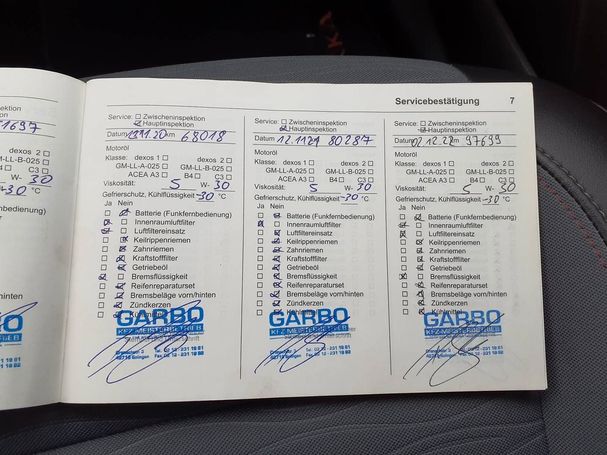 Servicebestätigung 7
pektion
ktion
1697
exos 2
L-B-025
C3
30
-30 °C
bedienung)
hinten
Service: Zwischeninspektion
Hauptinspektion
Datum 13.11.20 km 68018
Motoröl
Klasse: dexos 1 dexos 2
GM-LL-A-025 GM-LL-B-025
ACEA A3 B4 C3
Viskosität: 5 W- 30
Gefrierschutz, Kühlflüssigkeit -30 °C
Ja Nein
Batterie (Funkfernbedienung)
Innenraumluftfilter
Luftfiltereinsatz
Keilrippenriemen
Zahnriemen
Kraftstofffilter
Getriebeöl
Bremsflüssigkeit
Reifenreparaturset
Bremsbeläge vorn/hinten
Zündkerzen
GARBO
KFZ-MEISTERBETRIEB
Service: Zwischeninspektion
Hauptinspektion
Datum 12.1121 80287
Motoröl
Klasse: dexos 1 dexos 2
GM-LL-A-025 GM-LL-B-025
ACEA A3 B4 C3
Viskosität: 5 W- 30
Gefrierschutz, Kühlflüssigkeit -30 °C
Ja Nein
Batterie (Funkfernbedienung)
Innenraumluftfilter
Luftfiltereinsatz
Keilrippenriemen
Zahnriemen
Kraftstofffilter
Getriebeöl
Bremsflüssigkeit
Reifenreparaturset
Bremsbeläge vorn/hinten
Zündkerzen
Kühlmittel
GARBO
KFZ-MEISTERBETRIEB
Service: Zwischeninspektion
Hauptinspektion
Datum 02.12.22 km 97699
Motoröl
Klasse: dexos 1 dexos 2
GM-LL-A-025 GM-LL-B-025
ACEA A3 B4 C3
Viskosität: 5 W- 30
Gefrierschutz, Kühlflüssigkeit -30 °C
Ja Nein
Batterie (Funkfernbedienung)
Innenraumluftfilter
Luftfiltereinsatz
Keilrippenriemen
Zahnriemen
Kraftstofffilter
Getriebeöl
Bremsflüssigkeit
Reifenreparaturset
Bremsbeläge vorn/hinten
Zündkerzen
Kühlmittel
GARBO
KFZ-MEISTERBETRIEB